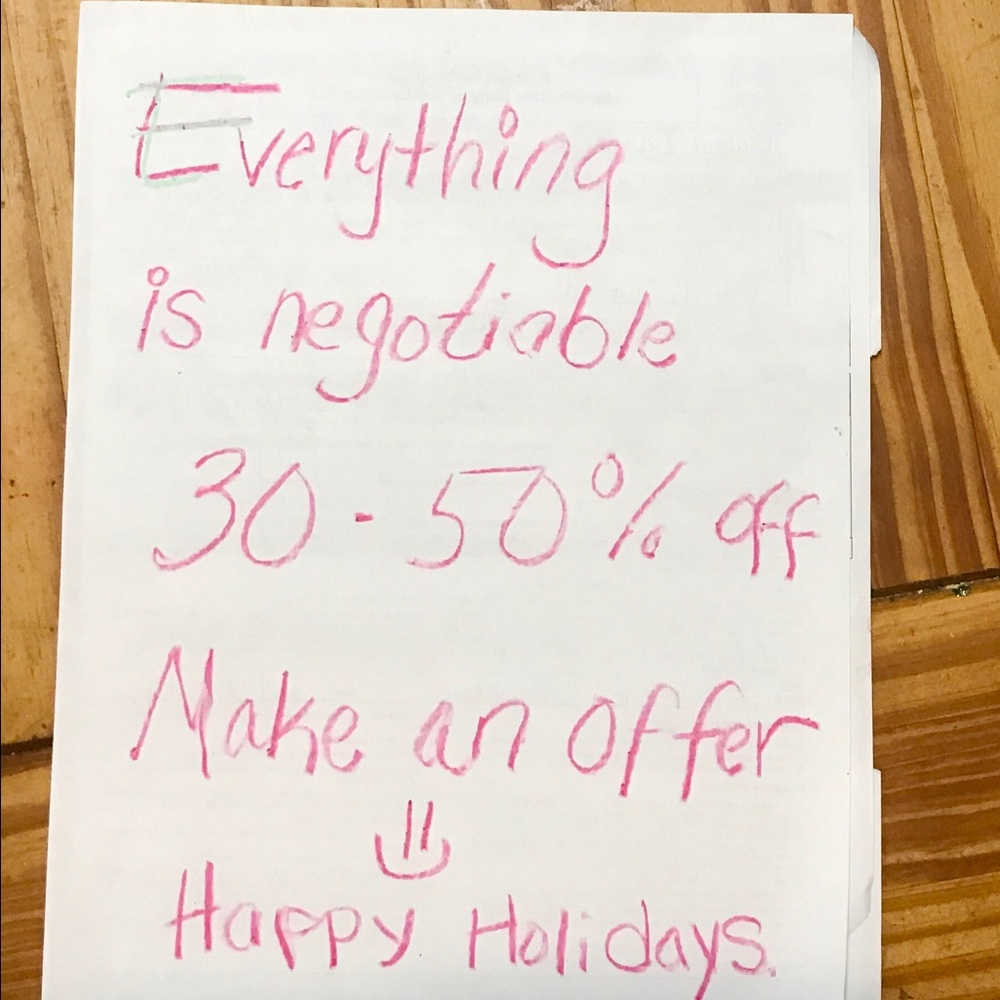 Everything
is negotiable
30 - 50% off
Make an offer
Happy Holidays.